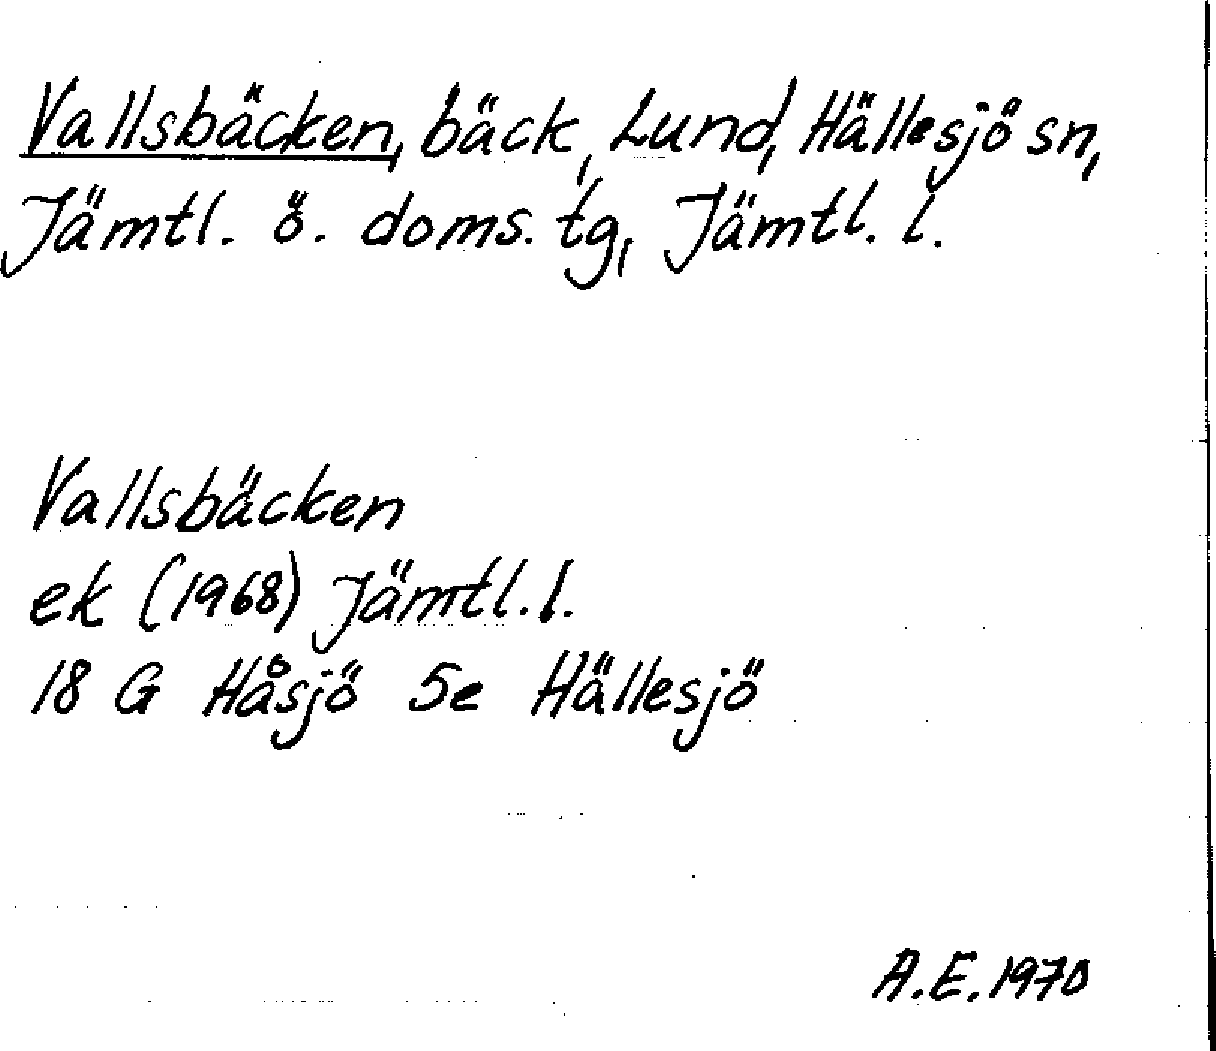 Vallsbäcken, bäck, Lund, Hällesjö sn,
Jämtl. ö. doms. tg, Jämtl. l.
Vallsbäcken
ek (1968) Jämtl. l.
18 G Håsjö 5e Hällesjö
A.E. 1970